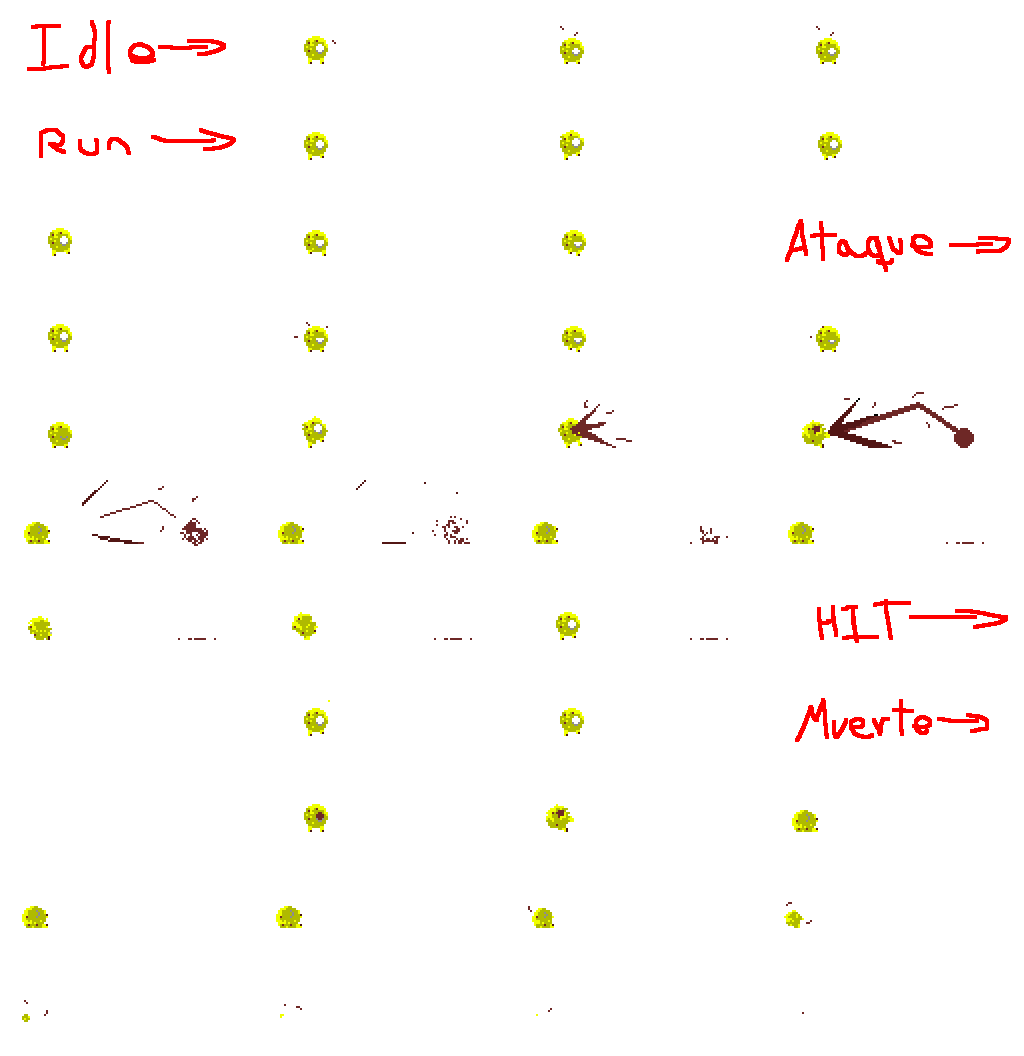 Idle
Run
Ataque
HIT
Muerte